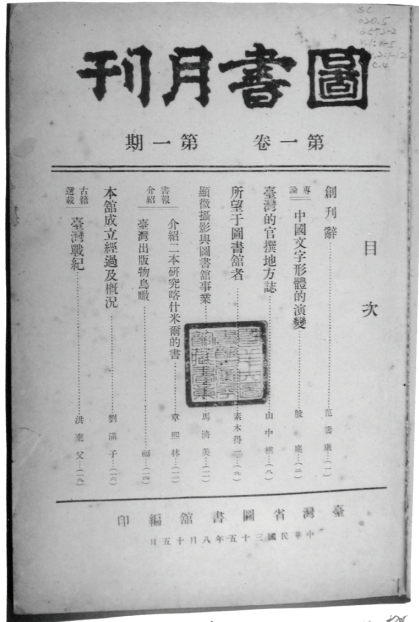 圖書月刊
第一卷 第一期
目次
創刊辭……范壽康…(一)
專論
中國文字形體的演變
臺灣的官撰地方誌……山中樵…(八)
所望于圖書舘者……素木得一
顯微攝影與圖書舘事業……馬濟美
書報介紹
介紹二本研究喀什米爾的書……章熙林
臺灣出版物鳥瞰
本舘成立經過及概況……劉滿子
古籍選載
臺灣戰紀……洪棄父
臺灣省圖書舘編印
中華民國三十五年八月十五日